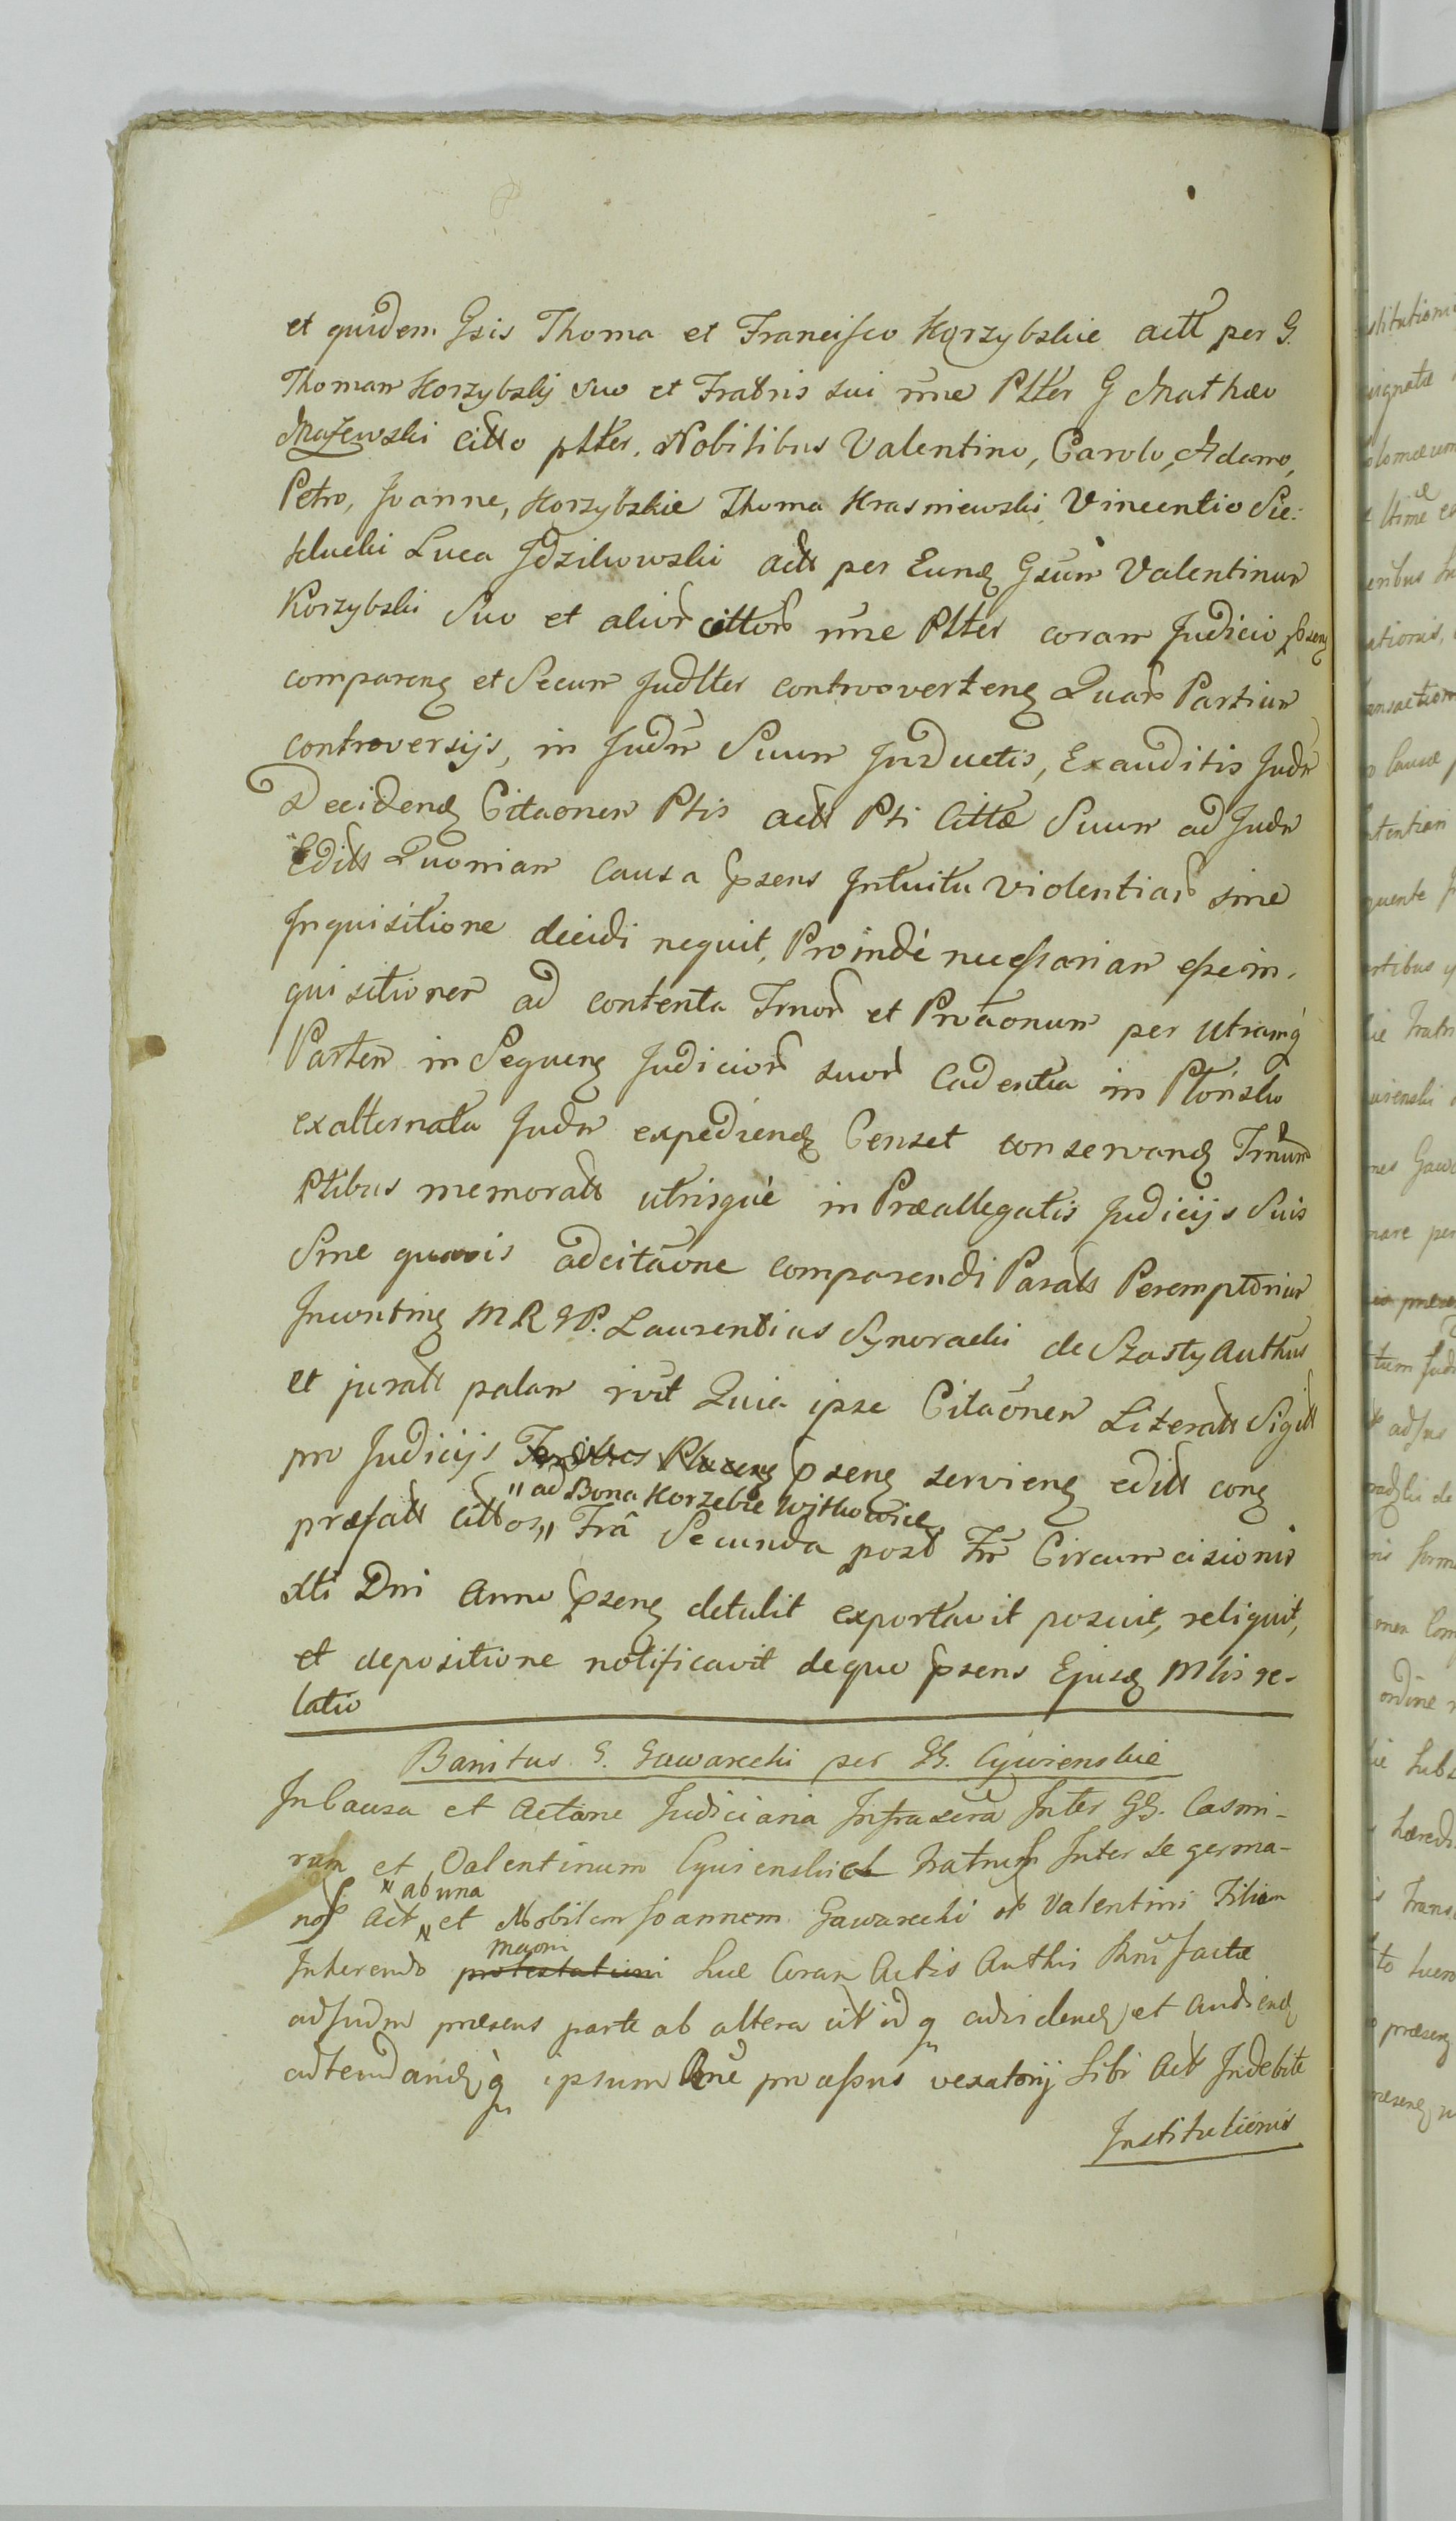 et quidem Gsis Thoma et Francisco Korzybskie actt per G.
Thomam Korzybskij suo et Fratris sui nne Pltter G Mathæo
Mazewski Citto pltter, Nobilibus Valentino, Carolo, Adamo,
Petro, Joanne, Korzybskie Thoma Krasniewski, Vincentio Sie:
kluchi Luca Jdzikowski actt per Eund Gsum Valentinum
Korzybski Suo et alior cittor nne Pltter coram Judicio psenq
comparenq et Secum Judltter controvertenq Quar Partium
controversijs, in Judm Suum Jnductis, Exauditis Judm
Decidend Citaonem Ptis actt Pti Cittæ Suum ad Judm
Editt Quoniam Causa psens Jntuitu Violentiar sine
Jnquisitione decidi nequit, Proindè necessariam esse in,
quisitionem ad contenta Trnor et Protaonum per utramq
Partem in Sequenq Judicior suor Cadentia in Płońsko
exalternata Judm expediend Censet conservand Trnum
Ptibus memoratt utrisquè in Præallegatis Judicijs Suis
Sine quavis adcitaone comparendi Paratt Peremptorium
Jncontinq MRGP. Laurentius Synoracki de Szasty Authus
et juratt palam rvit Quia ipse Citaonem Literatt Sigitt
pro Judicijs psenq servienq editt conq
præfatt Cittos,, Fra Secunda post Fm Circumcisionis
,, ad Bona Korzebie Wjtkowice
Xti Dni Anno psenq detulit exportavit posuit, reliquit,
et depositione notificavit dequo psens Ejusd Mlis re-
latio
Banitus G. Gawarecki per GG. Cywienskie
Jn Causa et Actaone Judiciaria Jnfrascra Jnter GG. Casmi-
rum et Valentinum Cywienskie Fratres Jnter se germa-
nos Act et Nobilem Joannem Gawarecki ol Valentini Filium
ab una
Jnherendo protestationi Suæ Coram Actis Authis Rni factæ
maoni
ad Judm præsens parte ab altera citt id q advidend et Audiend
adtendand q ipsum Rne processus vexatorij Sibi Actt Jndebite
Jnstitutionis